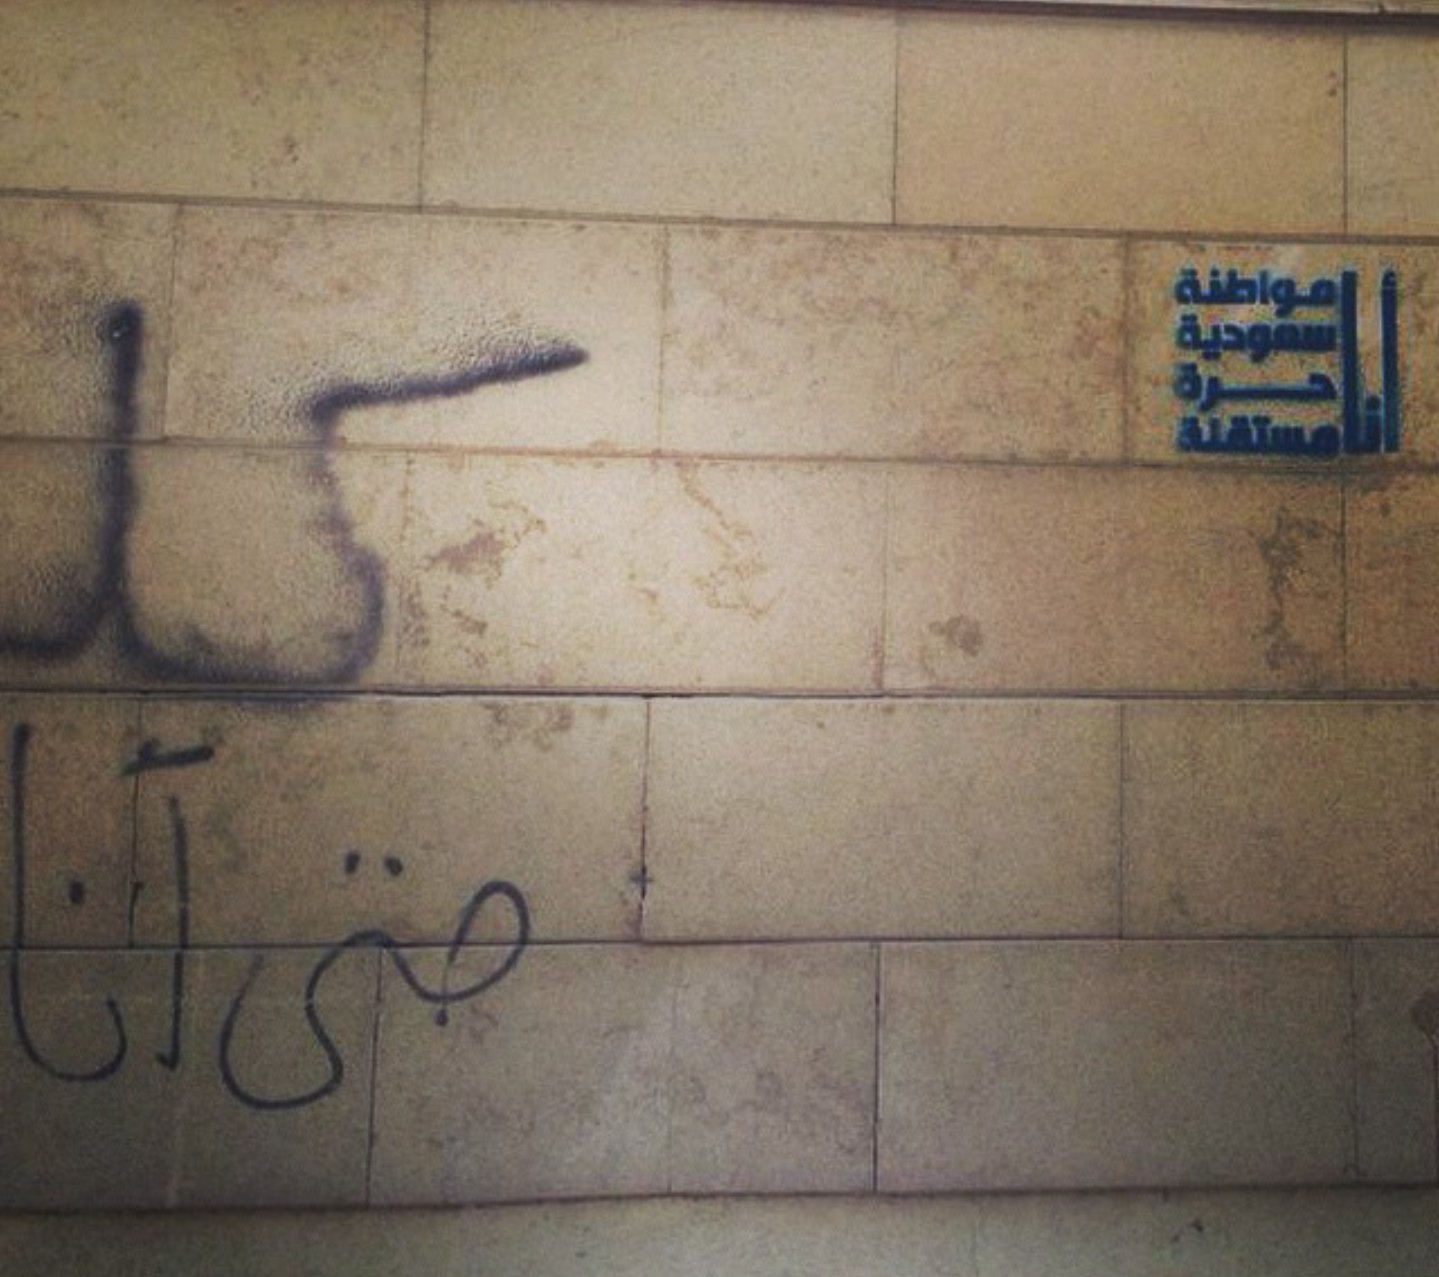 أنا
مواطنة
سعودية
حرة
مستقلة
حتى أنا